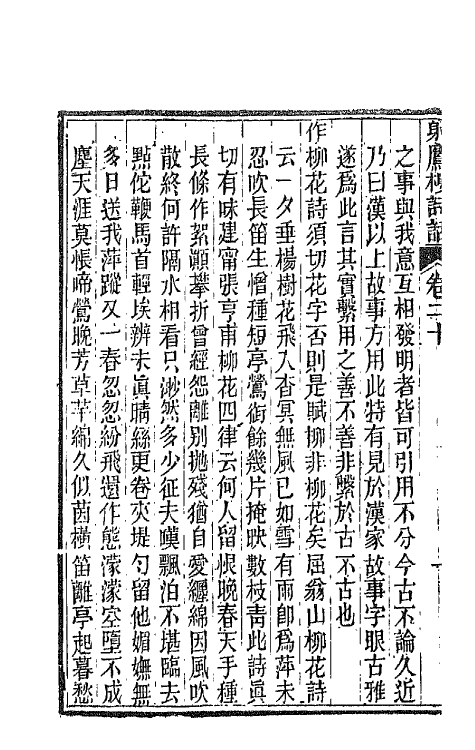 射鷹樓詩話 卷二十
之事與我意互相發明者皆可引用不分今古不論久近
乃曰漢以上故事方用此特有見於漢家故事字眼古雅
遂爲此言其實繫用之善不善非繫於古不古也
作柳花詩須切花字否則是賦柳非柳花矣屈翁山柳花詩
云一夕垂楊樹花飛入杳冥無風已如雪有雨卽爲萍未
忍吹長笛生憎種短亭鶯銜餘幾片掩映數枝靑此詩眞
切有味建甯張亨甫柳花四律云何人留恨晚春天手種
長條作絮顚攀折曾經怨離別抛殘猶自愛纒綿因風吹
散終何許隔水相看只渺然多少征夫嘆飄泊不堪臨去
點佗鞭馬首輕埃辨未眞晴絲更卷夾堤勻留他媚嫵無
多日送我萍蹤又一春忽忽紛飛還作態濛濛空墮不成
塵天涯莫悵啼鶯晚芳草芊綿久似茵橫笛離亭起暮愁